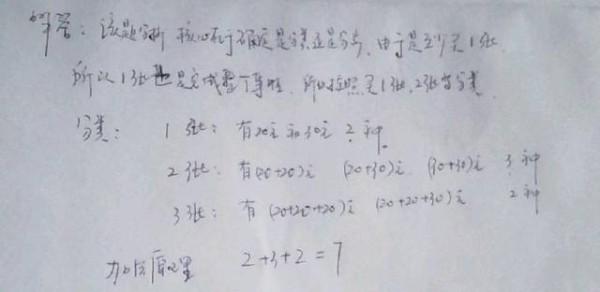 解答：该题分析 核心在于确定是分类还是分步，由于是至少买1张
所以1张也是完成整个事情，所以按照买1张，2张等分类
分类：1张：有20元和30元 2种。
2张：有(20+20)元 (20+30)元 (30+30)元 3种
3张：有(20+20+20)元 (20+20+30)元 2种
加法原理 2+3+2=7